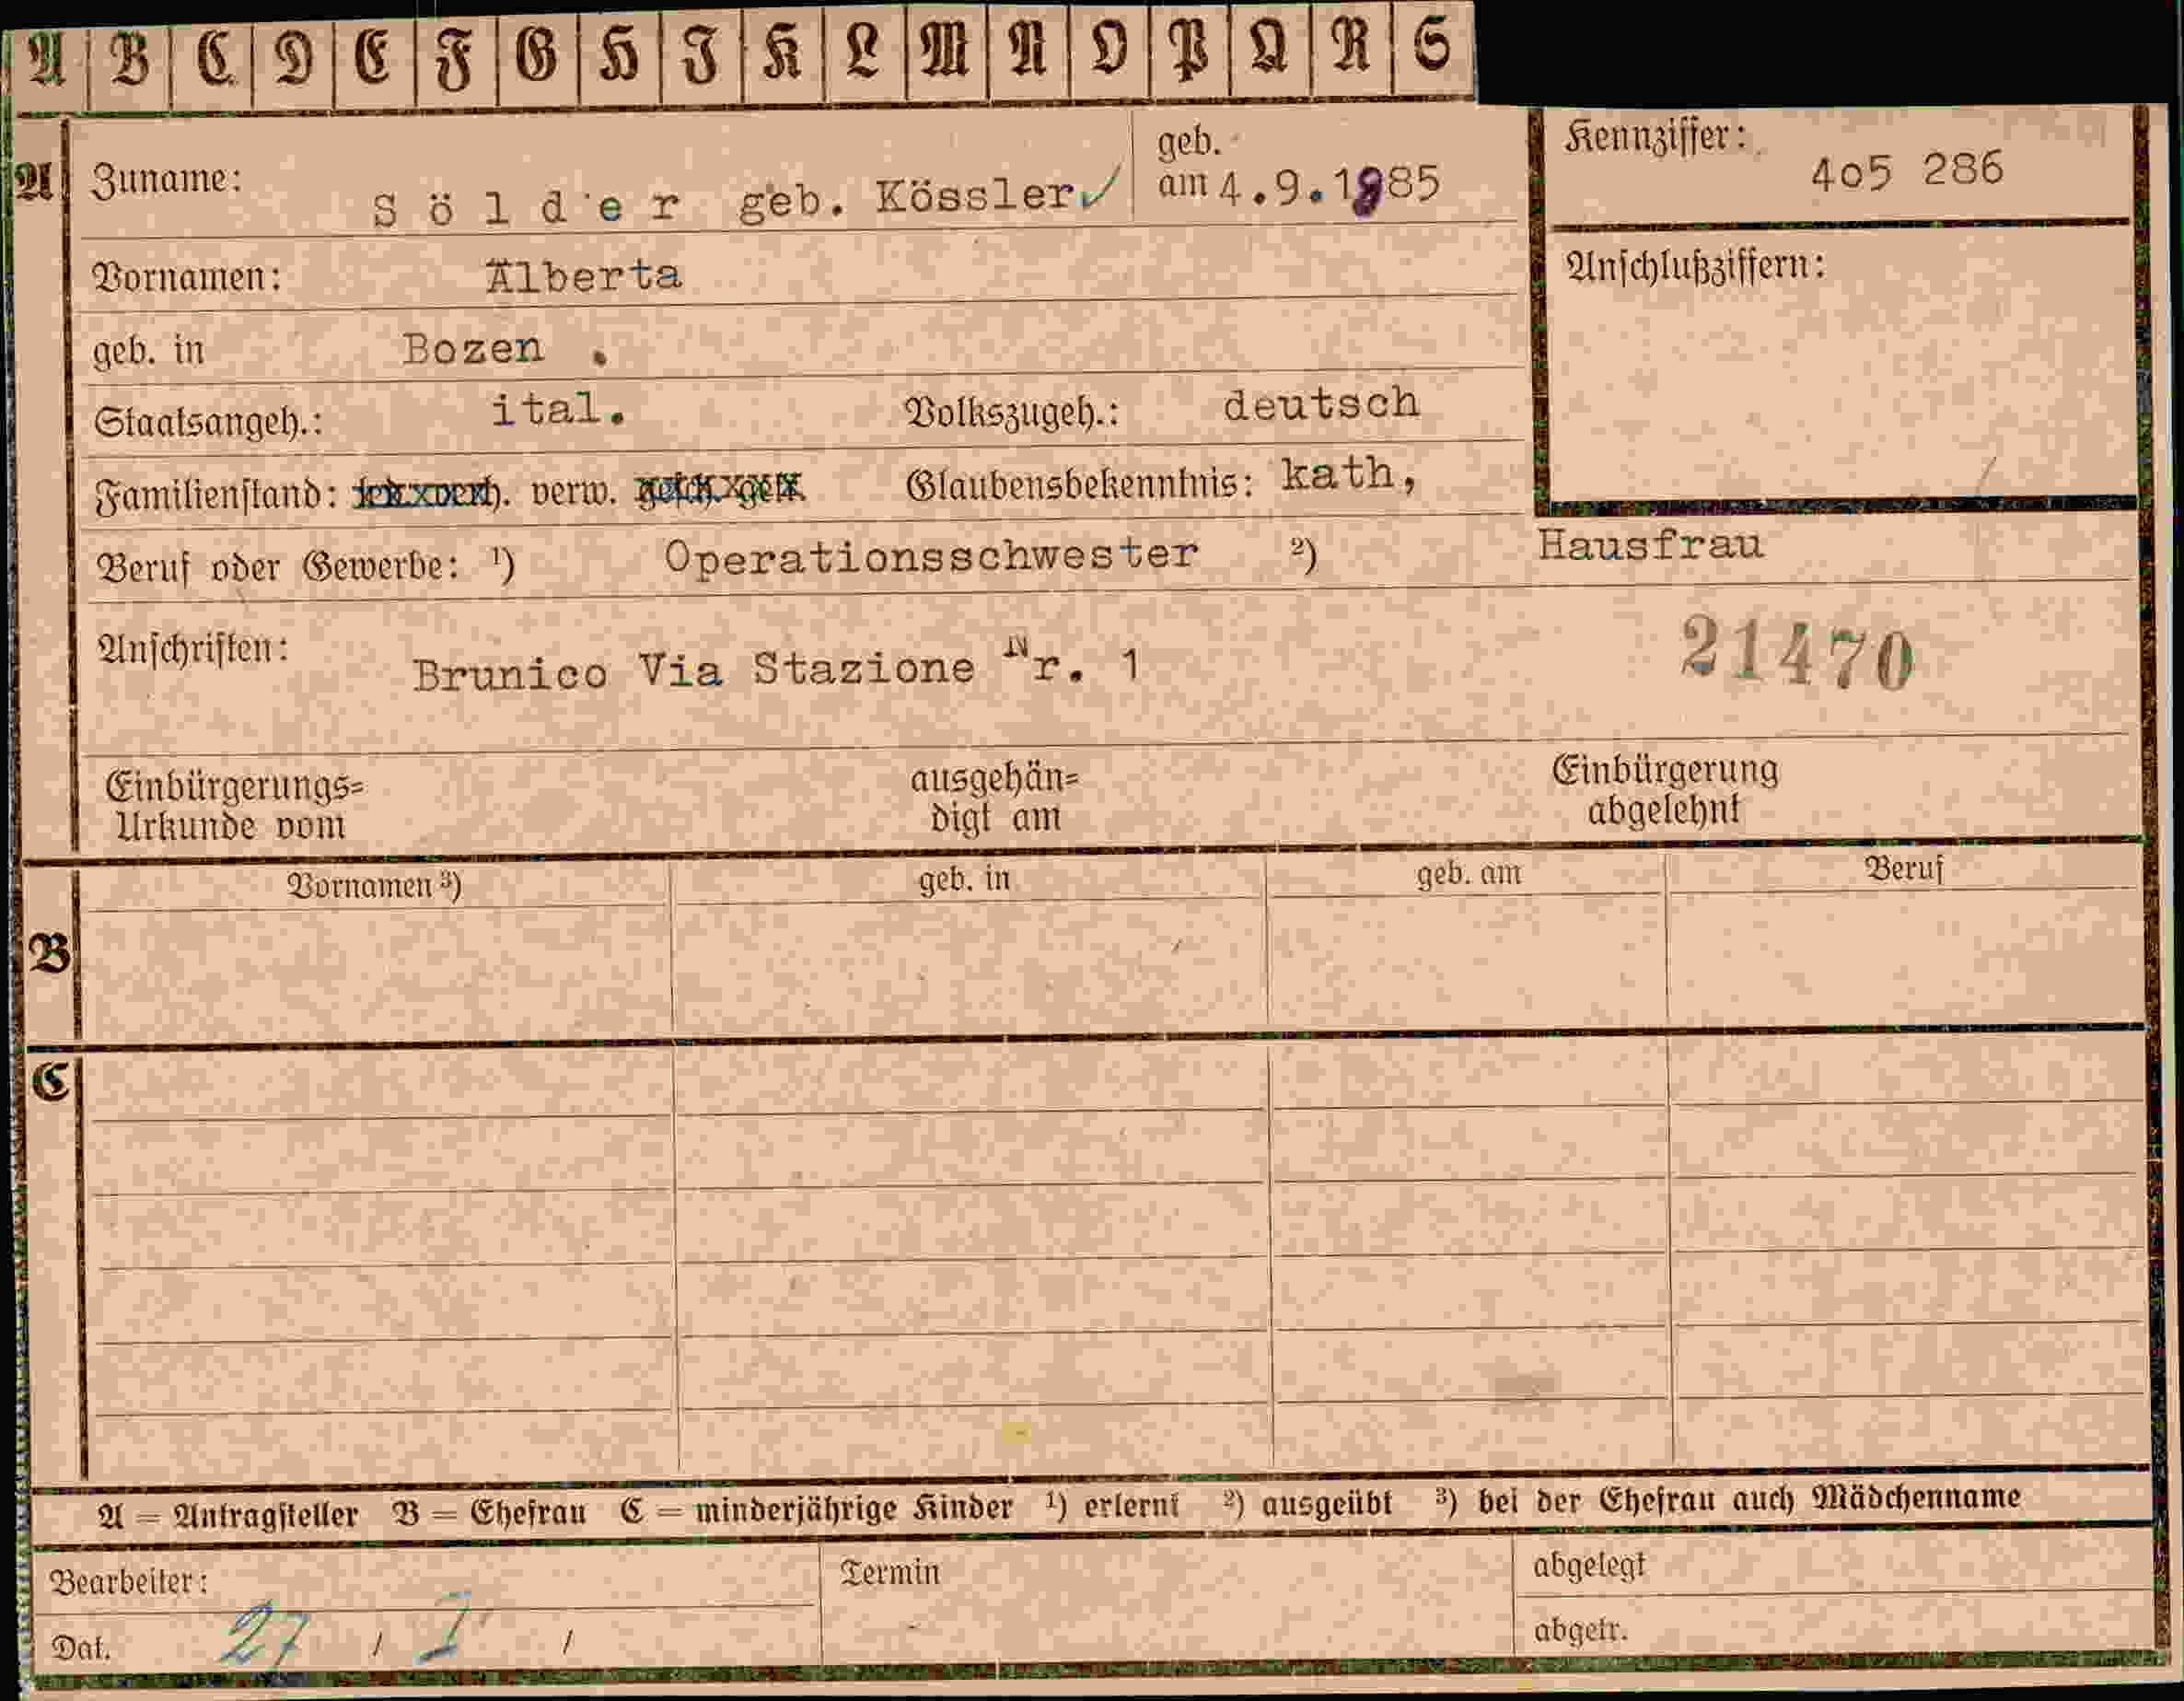 A B C D E F G H I K L M N O P Q R S
A Zuname: Sölder geb. Kössler geb. am 4.9.1885
Kennziffer: 405 286
Vornamen: Älberta
Anschlußziffern:
geb. in Bozen .
Staatsangeh.: ital. Volkszugeh.: deutsch
Familienstand: verw. Glaubensbekenntnis: kath,
Beruf oder Gewerbe: ¹) Operationsschwester ²) Hausfrau
Anschriften: Brunico Via Stazione Nr. 1
21470
Einbürgerungs= Urkunde vom
ausgehän= digt am
Einbürgerung abgelehnt
Vornamen ³) geb. in geb. am Beruf
B
C
A = Antragsteller B = Ehefrau C = minderjährige Kinder ¹) erlernt ²) ausgeübt ³) bei der Ehefrau auch Mädchenname
Bearbeiter: Termin abgelegt
Dat. 27 / / abgetr.